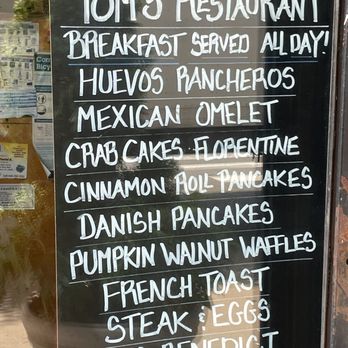 TOM'S RESTAURANT
BREAKFAST SERVED ALL DAY!
HUEVOS RANCHEROS
MEXICAN OMELET
CRAB CAKES FLORENTINE
CINNAMON ROLL PANCAKES
DANISH PANCAKES
PUMPKIN WALNUT WAFFLES
FRENCH TOAST
STEAK & EGGS
BENEDICT